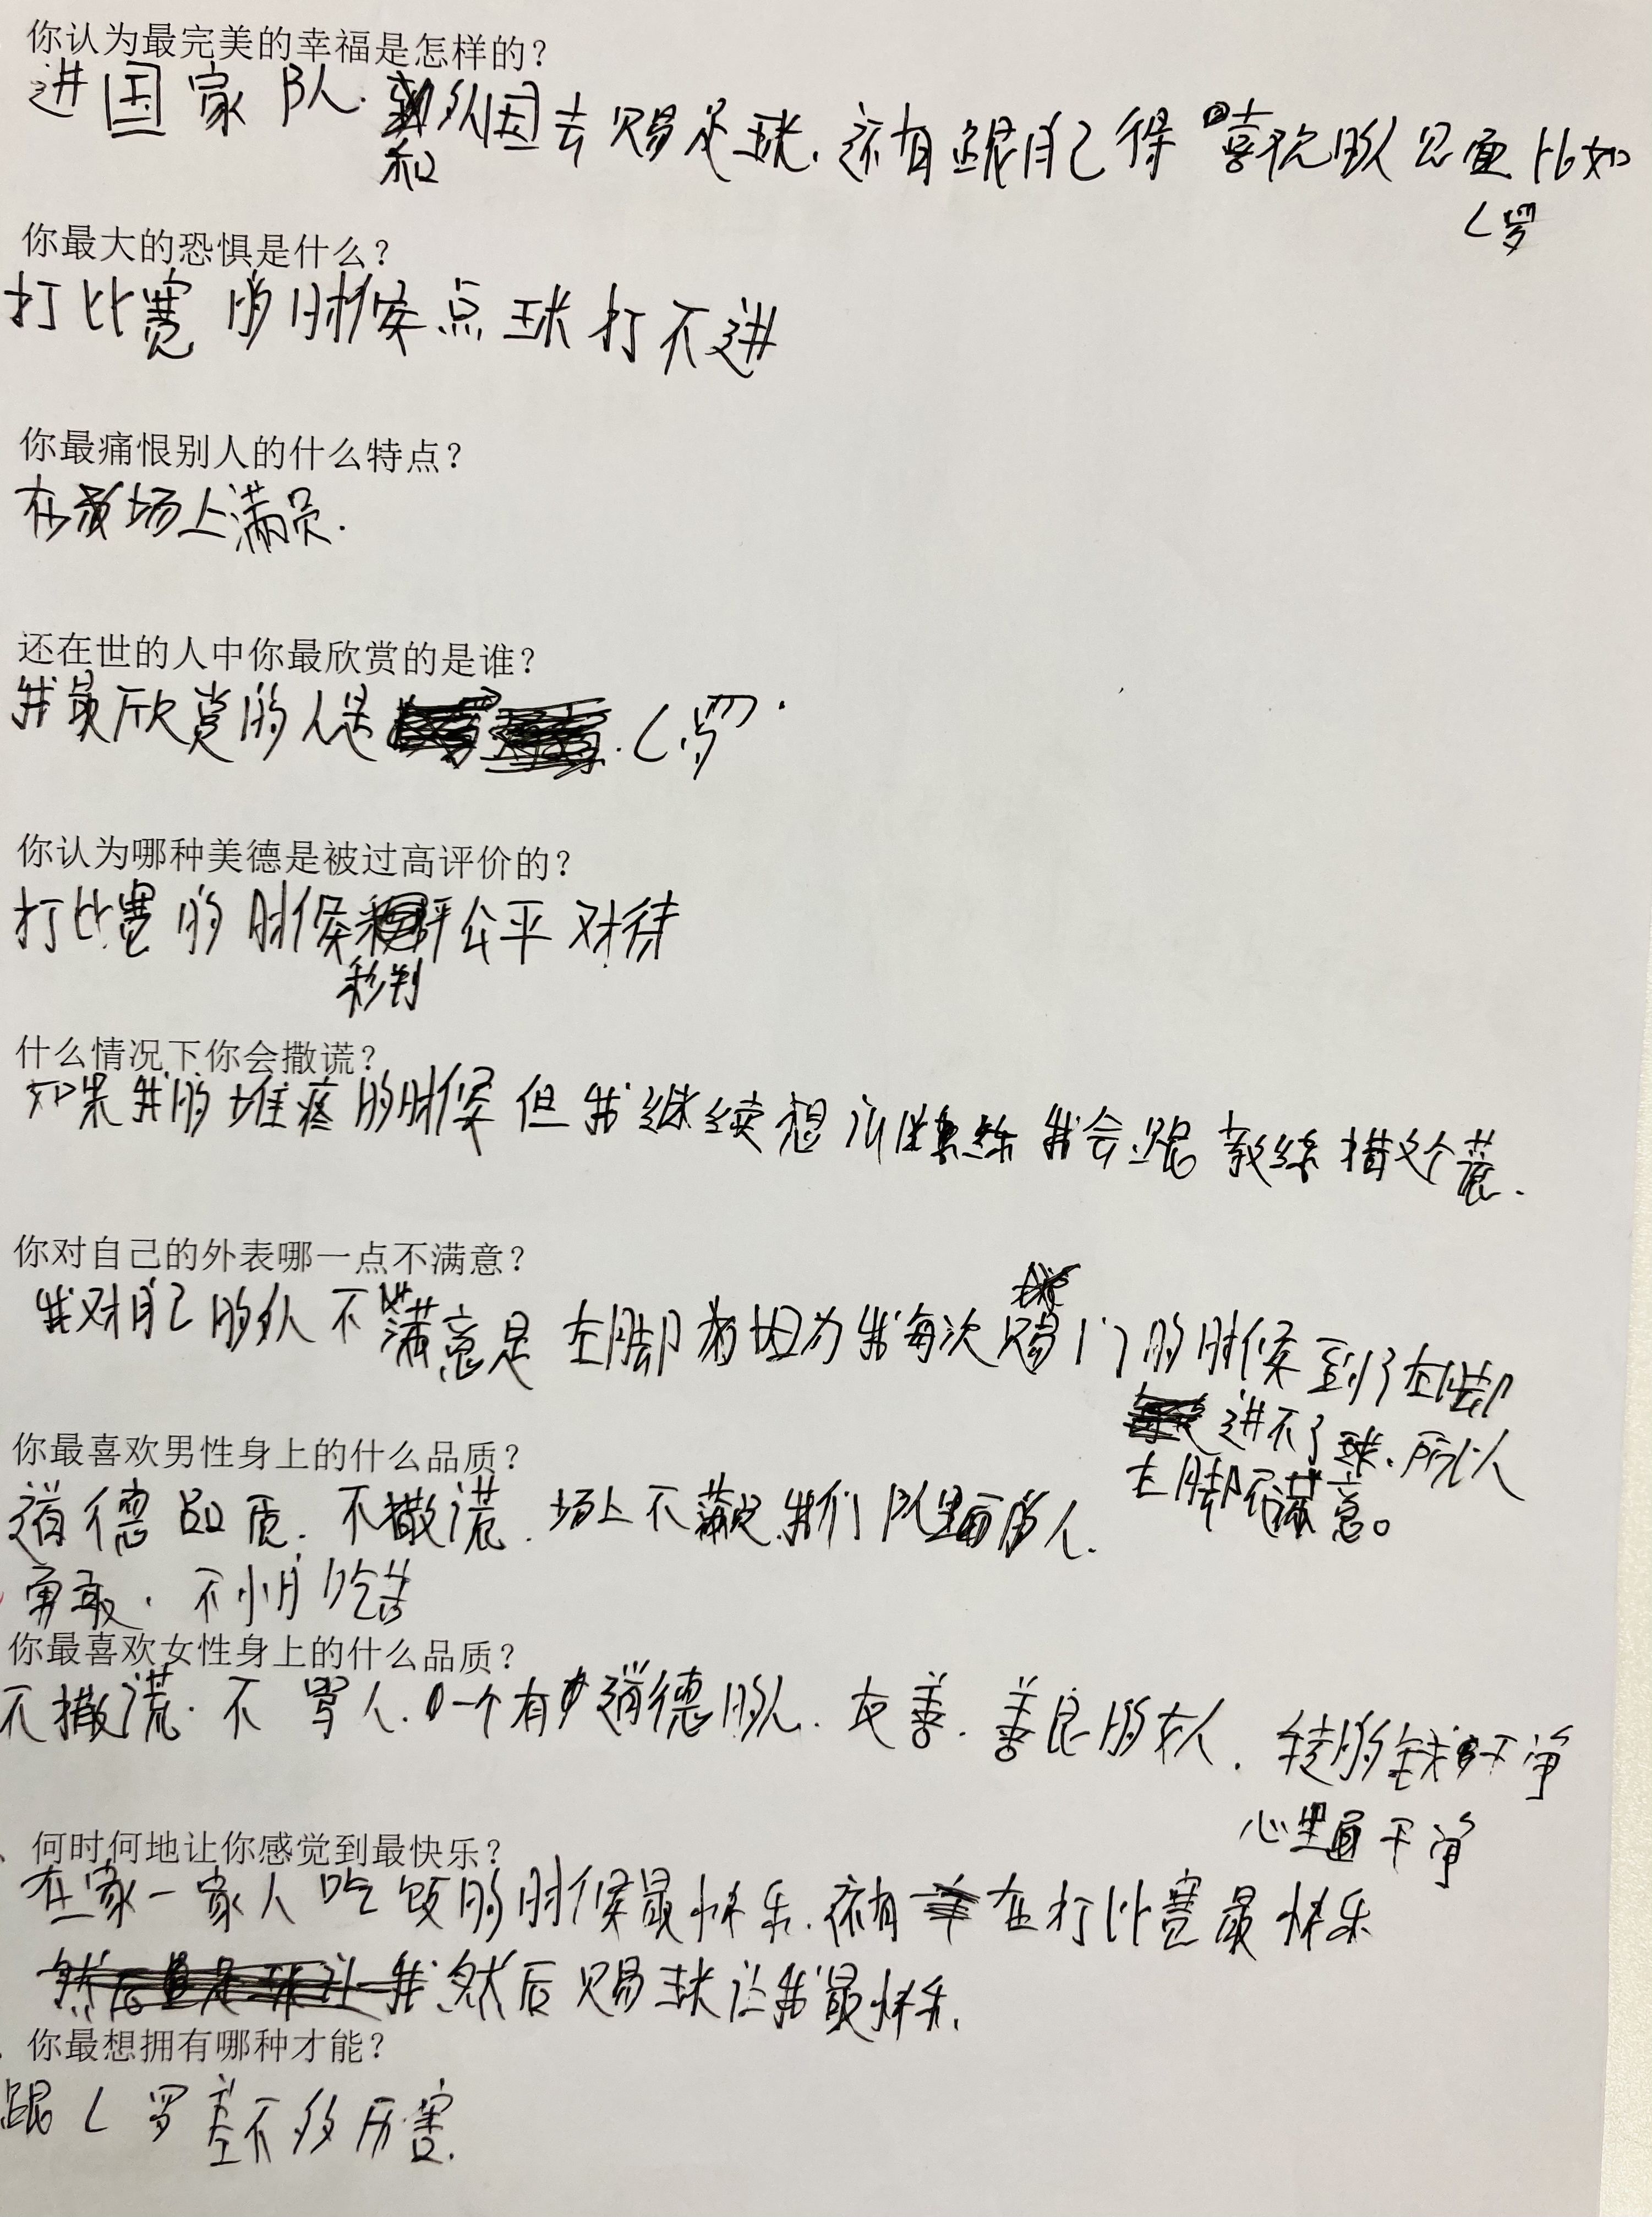 你认为最完美的幸福是怎样的？
进国家队.和外国去踢足球.还有跟自己得喜欢的人见面比如
C罗
你最大的恐惧是什么？
打比赛的时候点球打不进
你最痛恨别人的什么特点？
在场上满员.
还在世的人中你最欣赏的是谁？
我最欣赏的人是.C罗.
你认为哪种美德是被过高评价的？
打比赛的时候公平对待
判
什么情况下你会撒谎？
如果我的疼的时候但我继续想训练我会跟教练措这个谎.
你对自己的外表哪一点不满意？
我对自己的外不满意是左脚因为我每次踢门的时候到了左脚
进不了球.所以
左脚不满意。
你最喜欢男性身上的什么品质？
道德品质.不撒谎.场上不我们队里面的人.
勇敢.不怕吃苦
你最喜欢女性身上的什么品质？
不撒谎.不骂人.一个有道德的人.友善.善良的女人.的钱干净
心里面干净
何时何地让你感觉到最快乐？
在家一家人吃饭的时候最快乐.还有在打比赛最快乐
然后踢球让我最快乐.
你最想拥有哪种才能？
跟C罗差不多厉害.